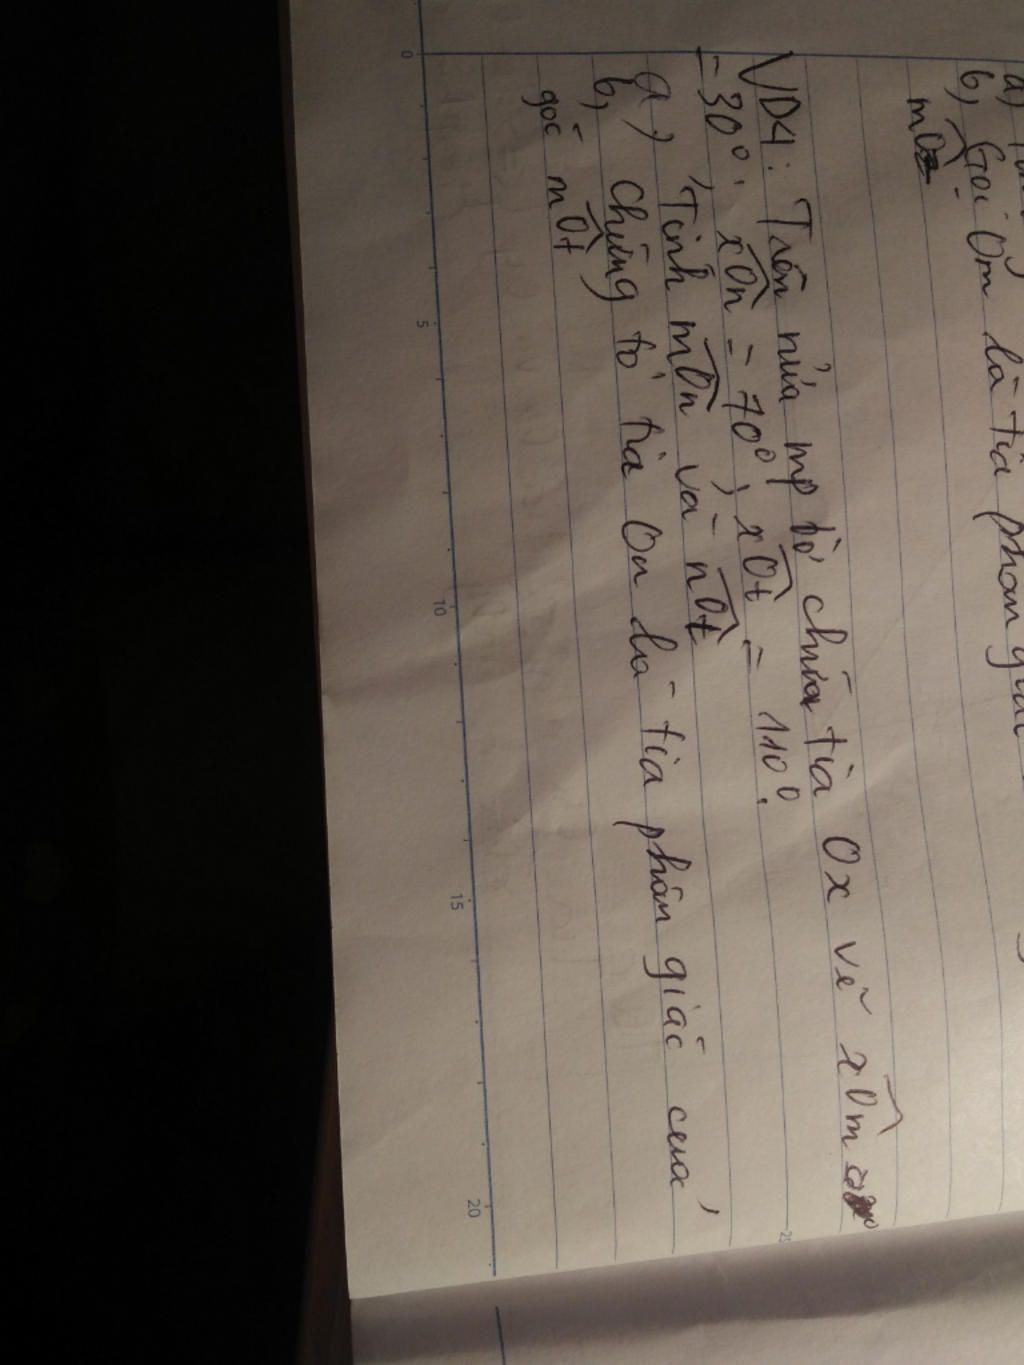 a)
b, Gọi Om là tia phân giác
mO
VD4: Trên nửa mp bờ chứa tia Ox vẽ xOm
= 30°, xOn = 70°, xOt = 110°.
a) Tính mOn và nOt
b, Chứng tỏ tia On là tia phân giác của
góc mOt
0 5 10 15 20
25